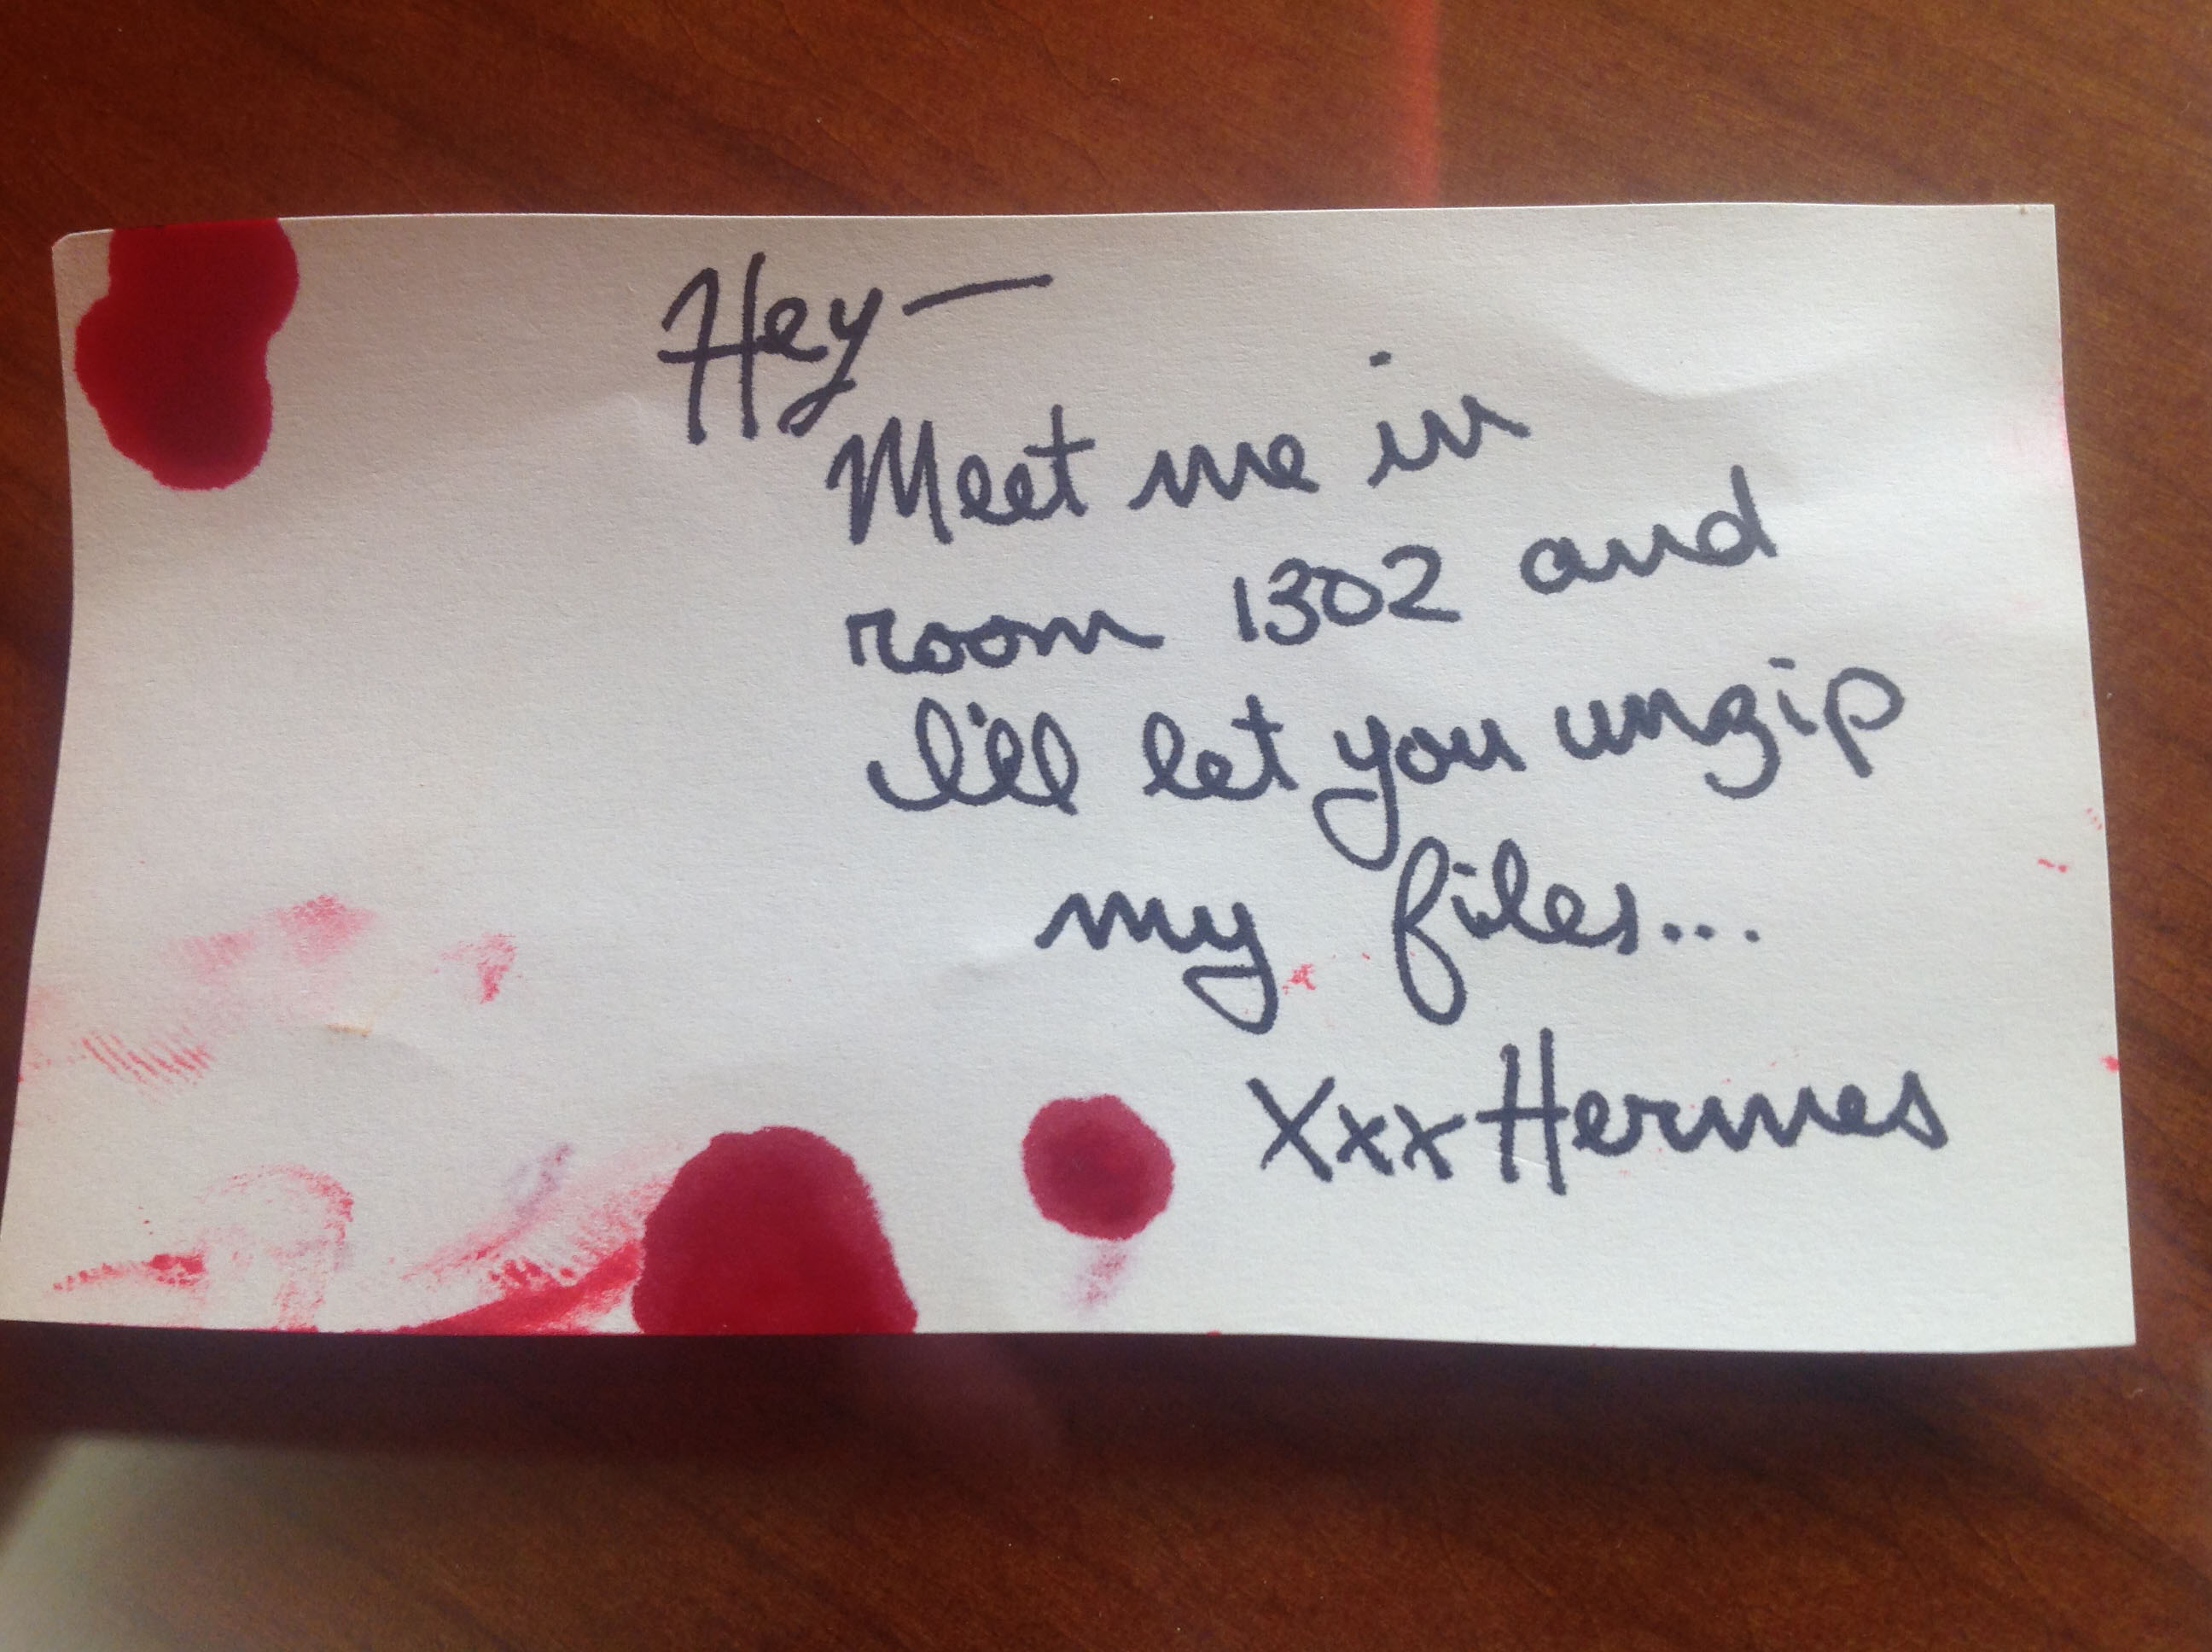 Hey—
Meet me in
room 1302 and
I'll let you unzip
my files...
Xxx Hermes